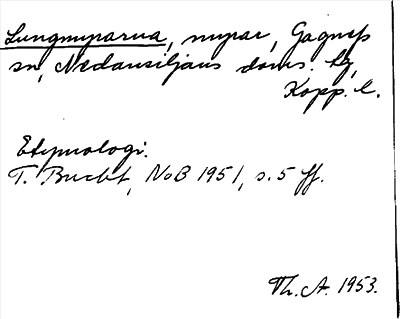 Lungmyrarna, myrar, Gagnefs
sn, Nedansiljans doms. hd,
Kopp. l.
Etymologi.
T. Bucht, NoB 1951, s. 5 ff.
Th. A. 1953.